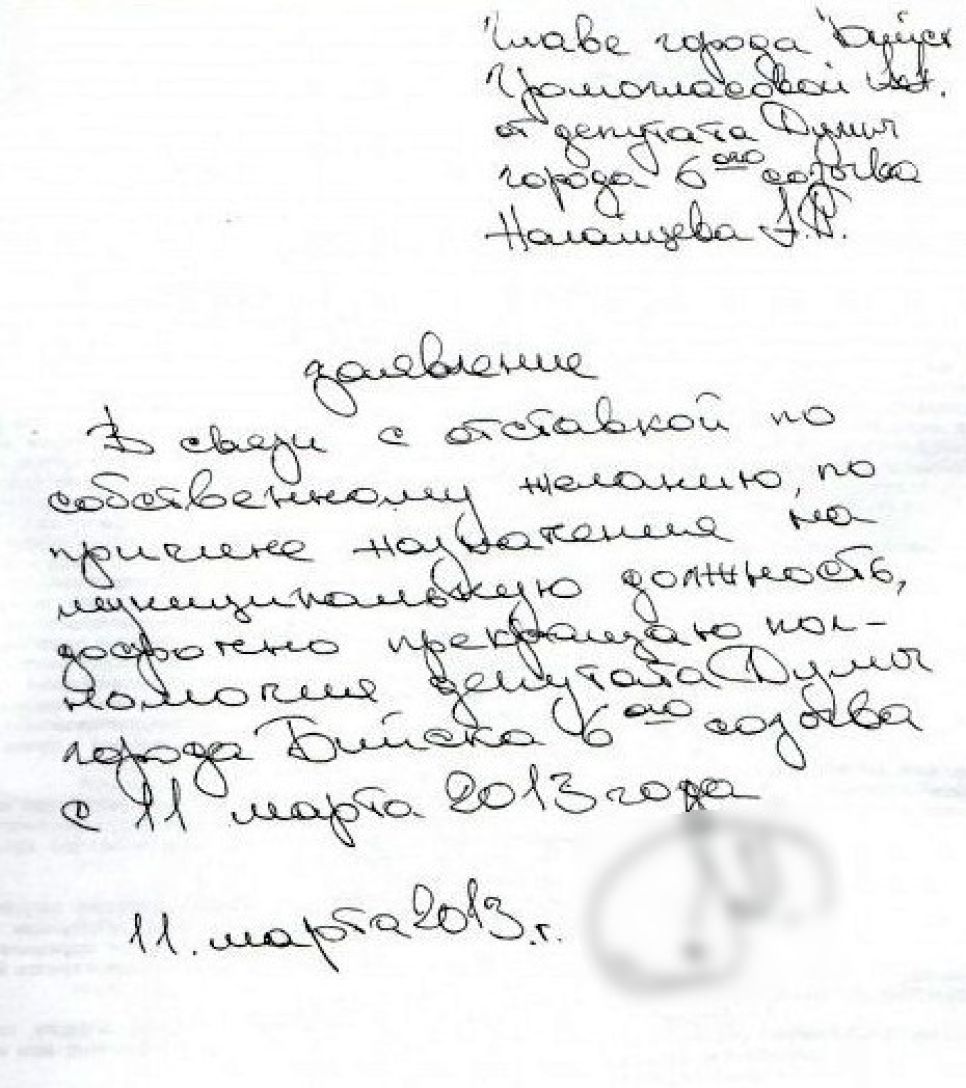 Главе города Бийск
Громогласовой
от депутата Думы
города 6ого созыва
А.В.
заявление
В связи с отставкой по
собственному желанию, по
причине назначения на
муниципальную должность,
досрочно прекращаю пол-
номочия депутата Думы
города Бийска 6ого созыва
с 11 марта 2013 года
11. марта 2013.г.